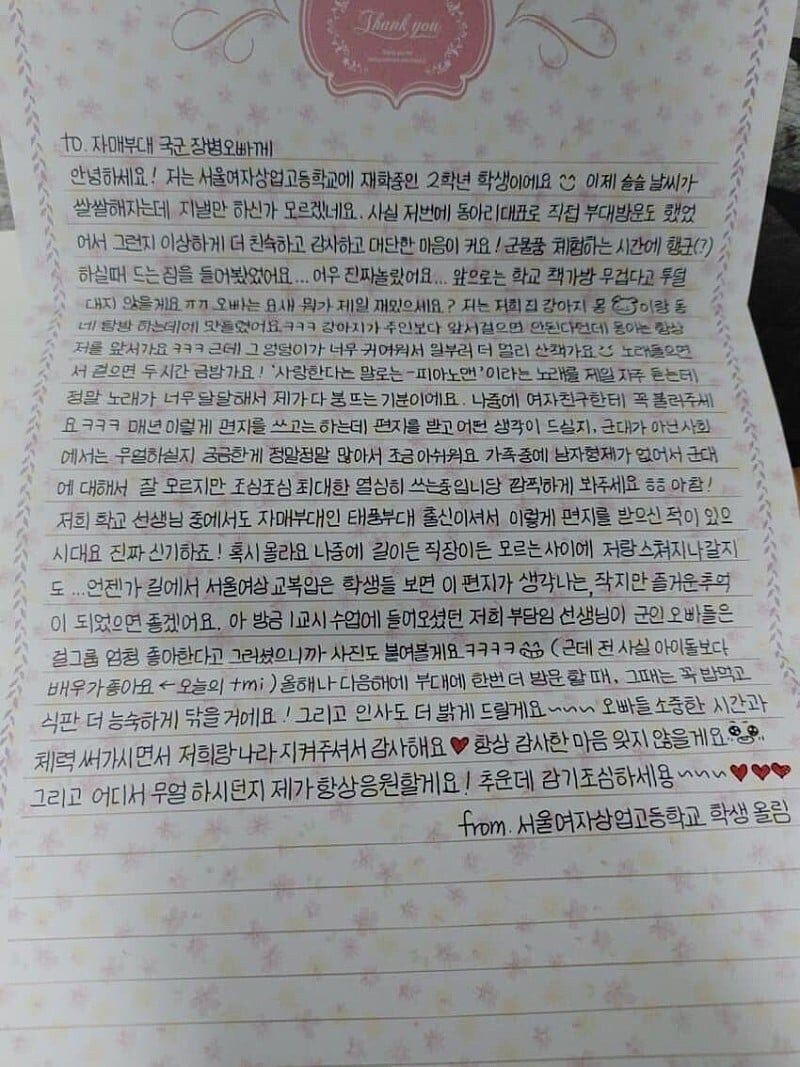 Thank you
to. 자매부대 국군 장병오빠께
안녕하세요! 저는 서울여자상업고등학교에 재학중인 2학년 학생이에요 이제 슬슬 날씨가
쌀쌀해지는데 지낼만 하신가 모르겠네요. 사실 저번에 동아리대표로 직접 부대방문도 했었
어서 그런지 이상하게 더 친숙하고 감사하고 대단한 마음이 커요! 군물품 체험하는 시간에 행군(?)
하실때 드는 짐을 들어봤었어요... 어우 진짜놀랐어요... 앞으로는 학교 책가방 무겁다고 투덜
대지 않을게요 ㄲㄲ 오빠는 요새 뭐가 제일 재밌으세요? 저는 저희 집 강아지 몽이랑 동
네 탐방 하는데에 맛들렸어요 ㅋㅋㅋ 강아지가 주인보다 앞서걸으면 안된다던데 몽이는 항상
저를 앞서가요 ㅋㅋㅋ 근데 그 엉덩이가 너무 귀여워서 일부러 더 멀리 산책가요 노래들으면
서 걸으면 두시간 금방가요! '사랑한다는 말로는-피아노맨'이라는 노래를 제일 자주 듣는데
정말 노래가 너무 달달해서 제가 다 붕뜨는 기분이에요. 나중에 여자친구한테 꼭 불러주세
요 ㅋㅋㅋ 매년 이렇게 편지를 쓰고는 하는데 편지를 받고 어떤 생각이 드실지, 군대가 아닌 사회
에서는 무얼하실지 궁금한게 정말정말 많아서 조금 아쉬워요 가족중에 남자형제가 없어서 군대
에 대해서 잘 모르지만 조심조심 최대한 열심히 쓰는중입니당 깜찍하게 봐주세요 ㅎㅎ 아참!
저희 학교 선생님 중에서도 자매부대인 태풍부대 출신이셔서 이렇게 편지를 받으신 적이 있으
시대요 진짜 신기하죠! 혹시 몰라요 나중에 길이든 직장이든 모르는사이에 저랑 스쳐지나갈지
도 ...언젠가 길에서 서울여상 교복입은 학생들 보면 이 편지가 생각나는, 작지만 즐거운추억
이 되었으면 좋겠어요. 아 방금 1교시 수업에 들어오셨던 저희 부담임 선생님이 군인 오빠들은
걸그룹 엄청 좋아한다고 그러셨으니까 사진도 붙여볼게요 ㅋㅋㅋㅋ (근데 전 사실 아이돌보다
배우가좋아요 ← 오늘의 tmi) 올해나 다음해에 부대에 한번 더 방문 할 때, 그때는 꼭 밥먹고
식판 더 능숙하게 닦을 거에요! 그리고 인사도 더 밝게 드릴게요~~~ 오빠들 소중한 시간과
체력 써가시면서 저희랑 나라 지켜주셔서 감사해요♥ 항상 감사한 마음 잊지 않을게요
그리고 어디서 무얼 하시던지 제가 항상응원할게요! 추운데 감기조심하세용~~~♥♥♥
from. 서울여자상업고등학교 학생 올림